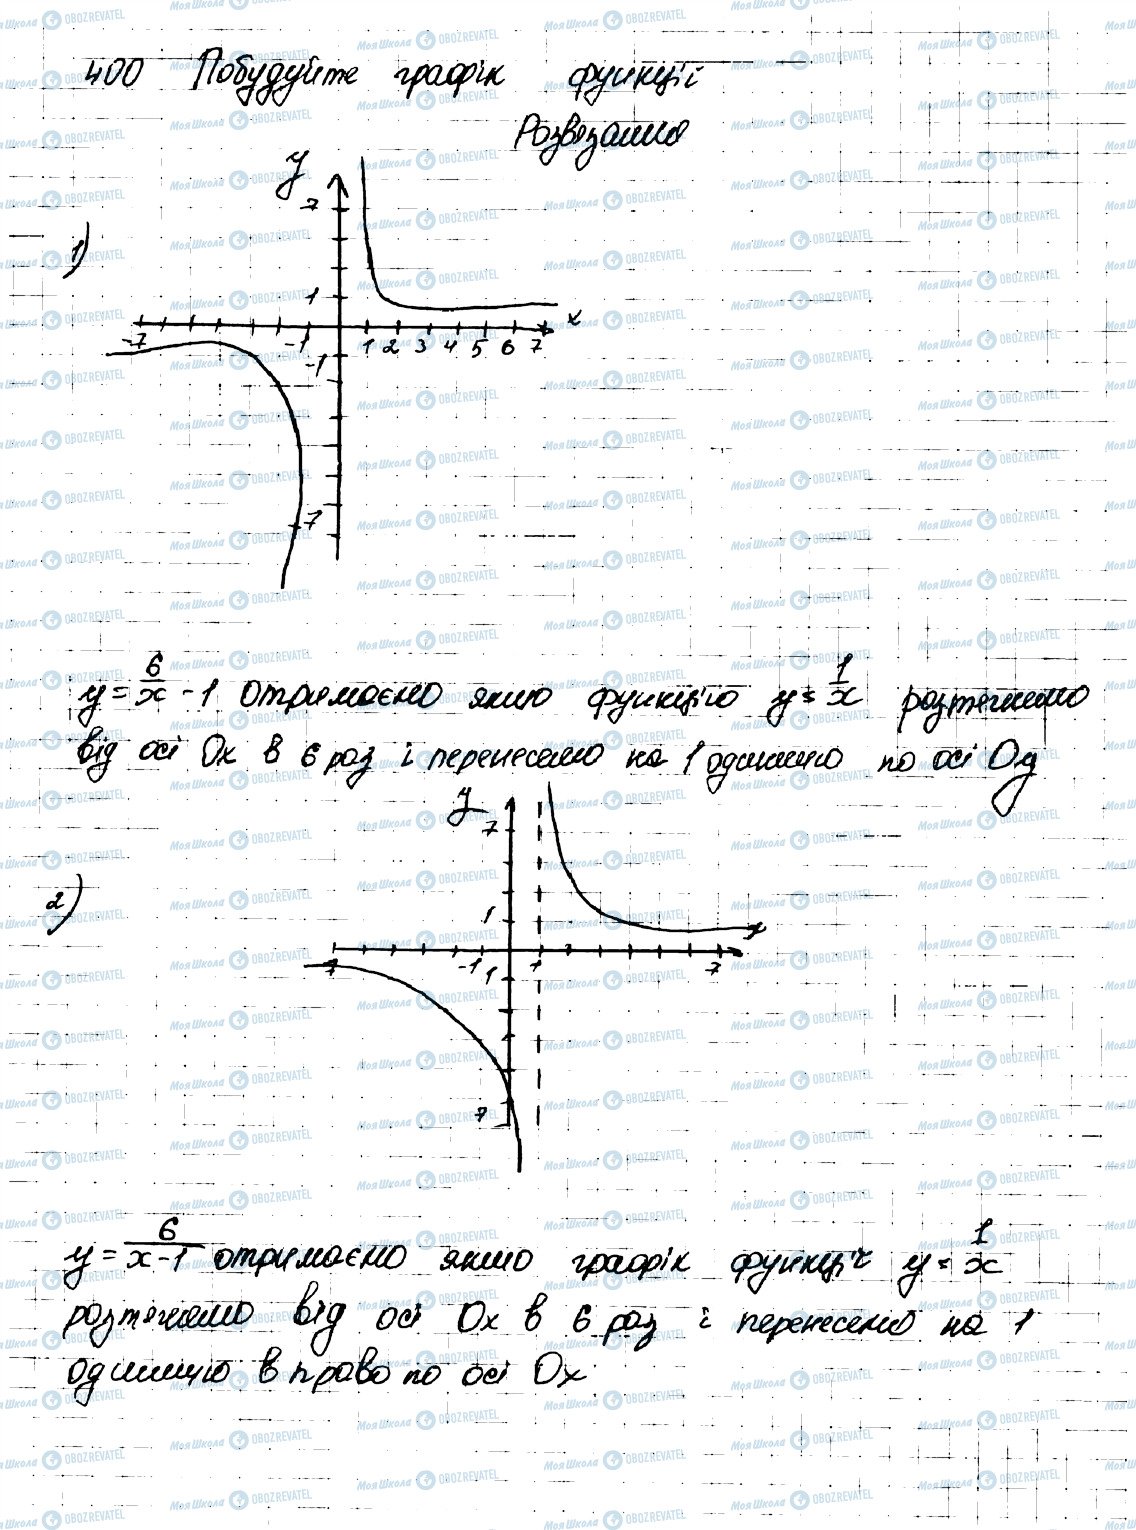 400 Побудуйте графік функції
Розв'язання
1)
y
7
1
x
-7 -1 1 2 3 4 5 6 7
-1
-7
y = 6/x - 1 отримаємо якщо функцію y = 1/x розтягнемо
від осі Ox в 6 раз і перенесемо на 1 одиницю по осі Oy
2)
y
7
1
x
-7 -1 1 7
1
7
y = 6/(x-1) отримаємо якщо графік функції y = 1/x
розтягнемо від осі Ox в 6 раз і перенесемо на 1
одиницю вправо по осі Ox
Моя Школа OBOZREVATEL